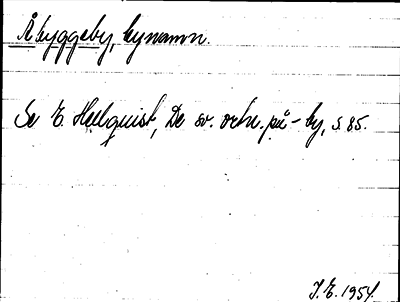 Åbyggeby, bynamn.
Se E. Hellquist, De sv. ortn. på -by, s. 85.
J.E. 1954.